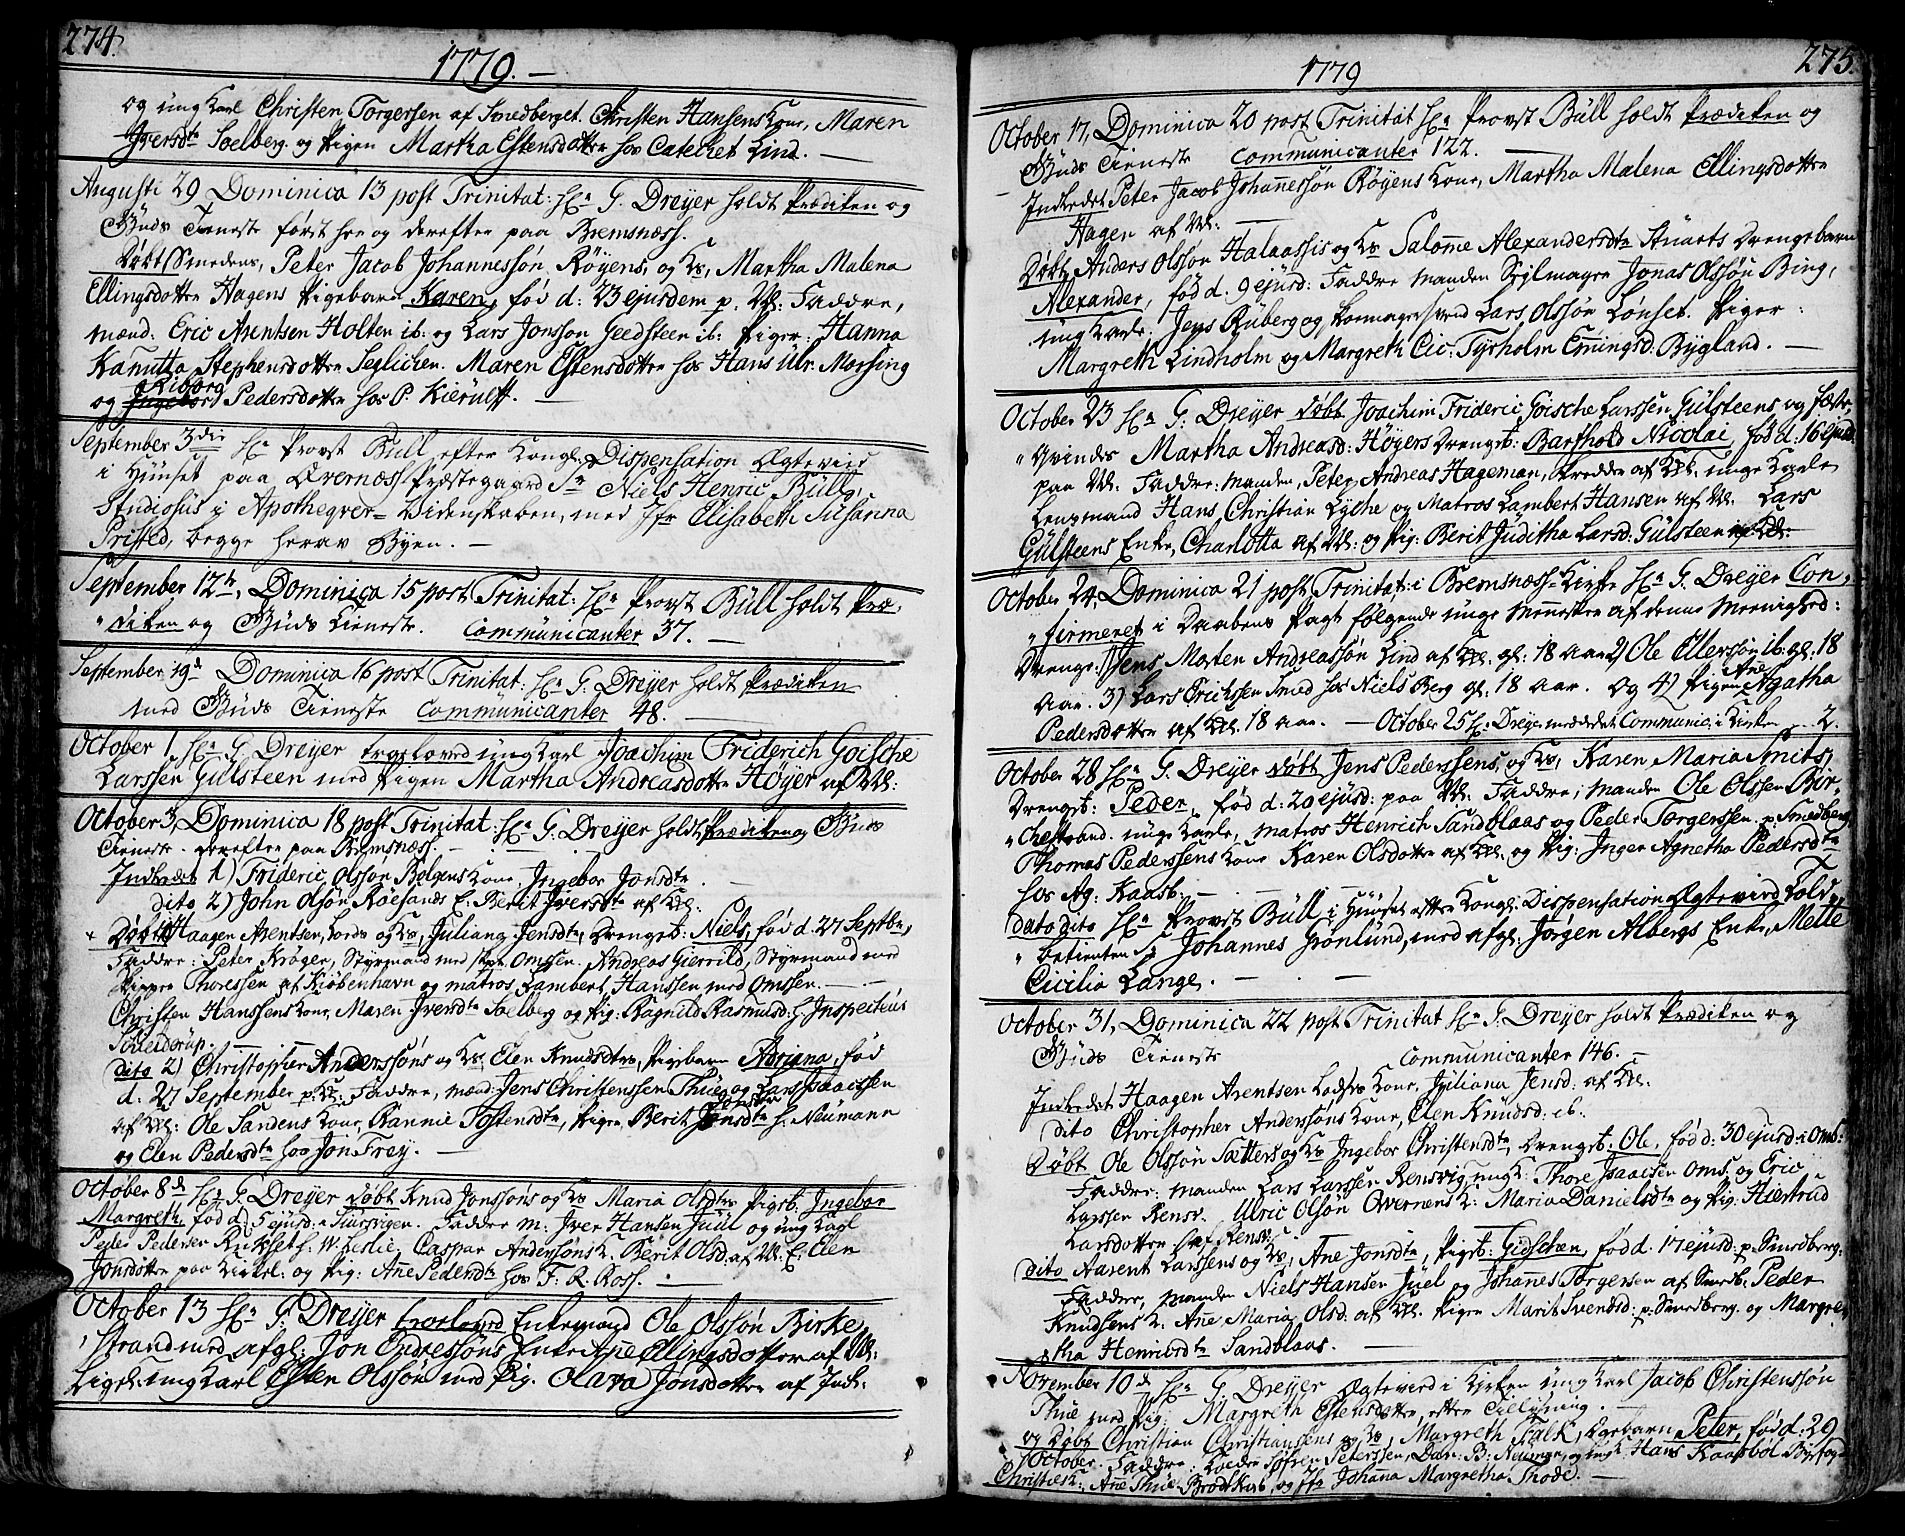 274.
1779.
og ung Karl Christen Torgersen af Smedberget. Christen Hansens Kone, Maren
Iversdtr Soelberg. og Pigen Martha Estensdotter hos Catechet Lind.
Augusti 29 Dominica 13 post Trinitat: Hr G. Dreyer holdt Prædiken og
Guds Tieneste først her og derefter paa Bremsnæss.
Døbt Smedens, Peter Jacob Johannessøn Røyens, og Ks, Martha Malena
Ellingsdotter Hagens Pigebarn Karen, fød d: 23 ejusdem p. Vl: Faddre,
mænd: Eric Arentsen Holten ib: og Lars Jonsson Geedsteen ib: Piger: Hanna
Kanutta Stephensdotter Seglichen. Maren Estensdotter hos Hans Ulr: Morsing
og Riborg Pedersdotter hos P. Kierulff.
September 3die Hr Provst Büll efter Kongl: Dispensation Ægteviid
i Huuset paa Qvernæss Præstegaard Sr Niels Henric Büll,
Studiosus i Apotheqver-Videnskaben, med Jfr Elisabeth Susanna
Pristed, begge herav Byen.
September 12te, Dominica 15 post Trinitat: Hr Provst Büll holdt Præ-
diken og Guds Tieneste. Communicanter 37.
September 19d Dominica 16 post Trinitat: Hr G. Dreyer holdt Prædiken
med Guds Tieneste Communicanter 48.
October 1, Hr G. Dreyer troeloved ung Karl Joachim Friderich Goische
Larssen Gülsteen med Pigen Martha Andreasdotter Høyer af Vl:
October 3, Dominica 18 post Trinitat: Hr G. Dreyer holdt Prædiken og Guds
Tieneste. derefter paa Bremsnæss.
Indledet 1) Frideric Olsson Bølgens Kone Ingebor Jonsdtr.
dito 2) John Olsøn Røesands E. Berit Iversdtr af Kl.
Døbt Haagen Arentsen, Lods og Ks, Juliana Jensdtr, Drengeb: Niels, fød d. 27 Septbr,
Faddre: Peter Krøger, Styrmand med Omssen. Andreas Gierrild, Styrmand med
Skipper Thoressen af Kiøbenhavn og matros Lambert Hanssen med Omssen.
Christen Hanssens Kone, Maren Iversdtr Soelberg og Pig: Ragnild Rasmusd: H. Inspecteur
dito 2) Christopher Anderssøns og Ks Elen Knudsdtrs, Pigebarn Adriana, fød
d. 27 September p. Kl: Faddre, mænd: Jens Christenssen Thüe og Lars Isaacssen
af Vl: Ole Sandens Kone, Rannie Tostensdtr, Piger Berit Jonsdtr H. Neumann
og Elen Pedersdtr hos Jon Frey.
October 8d Hr G. Dreyer døbt Knud Jonssøns og Ks Maria Olsdtrs Pigeb. Ingebor
Margreth, fød d. 5 ejusd: Faddre m: Iver Hansen Juul og ung Karl
Peder Pedersen H: W. Leslie, Caspar Anderssøns K. Berit Olsd: af Vl. E: Elen
Jonsdotter paa Kirkel: og Pig: Ane Pedersdtr hos F: R. Ross.
October 13 Hr G: Dreyer troeloved Enkemand Ole Olssøn Birke-
strand med afgl: Jon Endressøns Enke Ane Ellingsdotter af Vl:
Liges: ung Karl Esten Olssøn med Pig. Olava Jonsdotter af Indl:
1779
275.
October 17, Dominica 20 post Trinitat Hr Provst Büll holdt Prædiken og
Guds Tieneste Communicanter 122.
Indledet Peter Jacob Johannessøn Røyens Kone, Martha Malena Ellingsdotter
Hagen af Vl:
Døbt Anders Olsson Halaassis og Ks Salome Alexandersdtr Stuarts Drengebarn
Alexander, fød d. 9 ejusd: Faddre manden Sejlmager Jonas Olssøn Bing,
ung Karle. Jens Ruberg og Skomagersvend Lars Olssøn Lønset. Piger:
Margreth Lindholm og Margreth Cic: Tyrholm Emingsd: Bygland.
October 23 Hr G. Dreyer døbt Joachim Frideric Goische Larssen Gülsteens og Fæste-
Qvindes Martha Andreasd: Høyers Drengeb: Barthold Nicolai, fød d: 16 ejusd
paa Vl. Faddre: manden, Peter Andreas Hageman, Skredder af Kl. unge Karle
Leujtnand Hans Christian Lyche og Matros Lambert Hansen af Vl. Lars
Gülsteens Enke, Charlotta af Vl: og Pig: Berit Juditha Larsd: Gülsteen
October 24, Dominica 21 post Trinitat: i Bremsnæss-Kirke Hr G. Dreyer Con-
firmeret i Daabens Pagt følgende unge Mennesker af denne Meenighed:
Drenge. 1) Jens Morten Andreassøn Lind af Kl. gl: 18 aar 2) Ole Ellersøn ib: gl. 18
Aar. 3) Lars Erichsen Smed hos Niels Berg gl: 18 aar. og 4) Pigen Ane Agatha
Pedersdotter af Kl. 18 aar. October 25 Hr G. Dreyer meddelet Communic: i Kirken 2.
October 28 Hr G. Dreyer døbt Jens Pederssens, og Ks, Karen Maria Smits,
Drengeb: Peder, fød d: 20 ejusd: paa Vl. Faddre, manden Ole Olssen Bir-
chestrand. unge Karle, matros Henrich Sandblaas og Peder Torgerssen. p. Smedberg
Thomas Pederssens Kone Karen Olsdotter af Kl: og Pig: Inger Agnetha Pedersdtr
hos Ag: Kaasb:
dato dito Hr Provst Büll i Huuset efter Kongl: Dispensation Ægteviid Told-
betienten Sr Johannes Grønlund, med afgl: Jørgen Albergs Enke, Mette
Cicilia Lange.
October 31, Dominica 22 post Trinitat Hr G. Dreyer holdt Prædiken og
Guds Tieneste Communicanter 146.
Indledet Haagen Arentsen Lods's Kone, Juliana Jensd: af Kl:
dito Christopher Anderssøns Kone, Elen Knudsd: ib:
Døbt Ole Olssøn Sætters og Ks Ingebor Christensdtr, Drengeb. Ole, fød d: 30 ejusd:
Faddre: manden Lars Larssen Rensvig, ung K: Thore Isaacsen Oms. og Eric
Larssen Rensv. Ulric Olsøn Qvernens K: Maria Danielsdtr og Pig: Hiertrud
Larsdotter af Rensv.
dito Aarent Larssens og Ks, Ane Jonsdtr, Pigeb: Gidschen, fød d. 17 ejusd: p. Smedberg:
Faddre, manden Niels Hansen Juel og Johannes Torgersen af Smedb: Peder
Knudsens K: Ane Maria Olsd: af Kl. Piger Marit Svendsd: p. Smedberg. og Margre-
tha Henricsdtr Sandblaas.
November 10d Hr G. Dreyer Ægteviid i Kirken ung Karl Jacob Christenssøn
Thue med Pig: Margreth Estensdotter, efter Tillysning.
og Døbt Christian Christiansens og Ks, Margreth Falk, Drengebarn Peter, fød d: 29
October. Faddre: Søfren Peterssen, Dan: B: Neuman, og ung K Hans Kaasbøl
Christies K:, Ane Thue Brodtkorb, og Jfr Johana Margretha Thode.